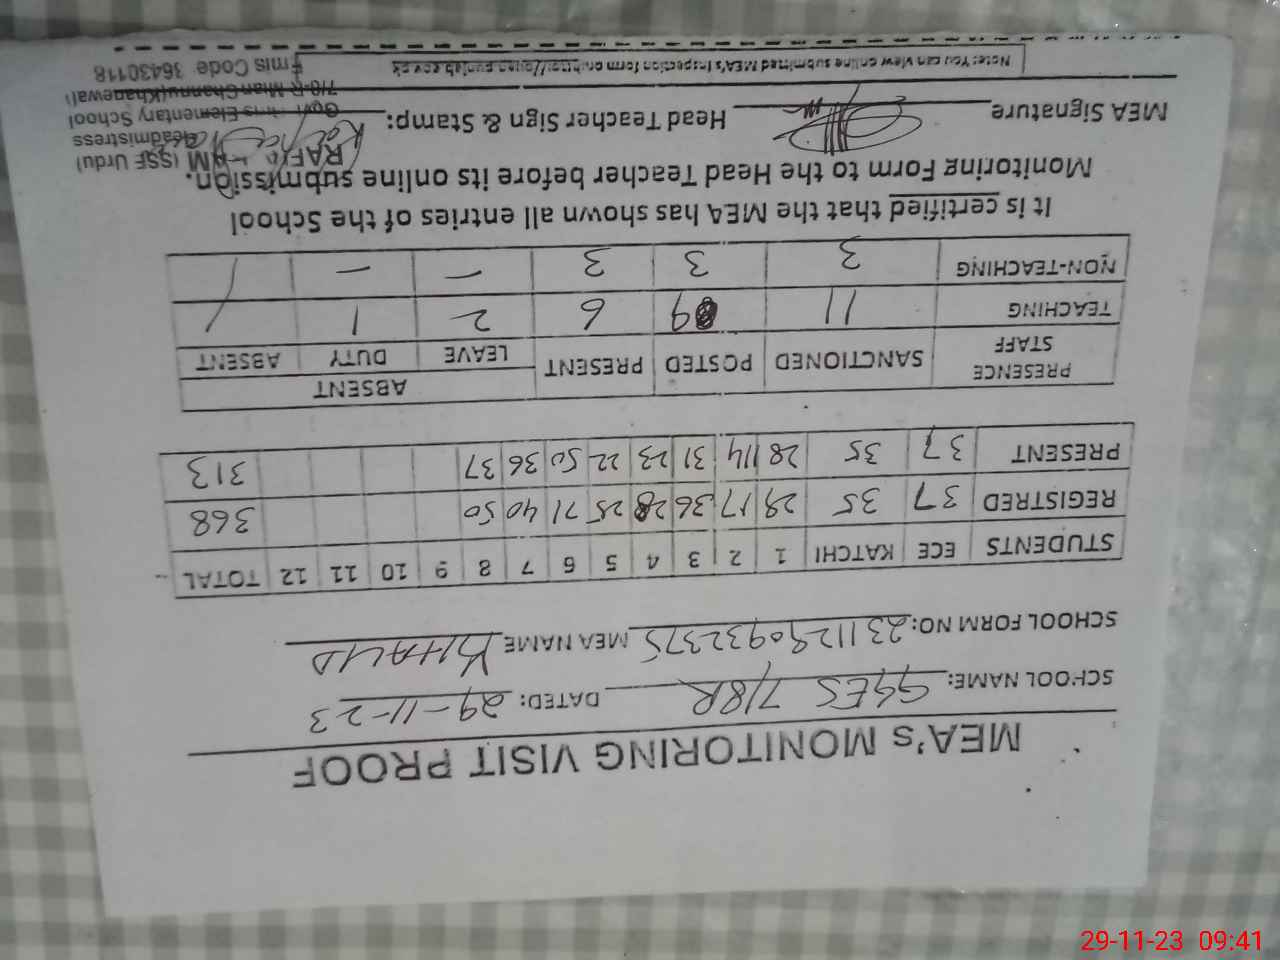 MEA's MONITORING VISIT PROOF
SCHOOL NAME: GGES 7/8R DATED: 29-11-23
SCHOOL FORM NO: 2311290932375 MEA NAME KHALID
STUDENTS ECE KATCHI 1 2 3 4 5 6 7 8 9 10 11 12 TOTAL
REGISTRED 37 35 29 17 36 28 25 71 40 50 368
PRESENT 37 35 28 14 31 23 22 50 36 37 313
ABSENT
PRESENCE STAFF SANCTIONED POSTED PRESENT LEAVE DUTY ABSENT
TEACHING 11 9 6 2 1 /
NON-TEACHING 3 3 3 - - /
It is certified that the MEA has shown all entries of the School
Monitoring Form to the Head Teacher before its online submission.
MEA Signature Head Teacher Sign & Stamp:
(SSE Urdu)
Headmistress
Elementary School
7/8-R Mian Channu(Khanewal)
Emis Code 36430118
Note: You can view online submitted MEA's Inspection form on
29-11-23 09:41